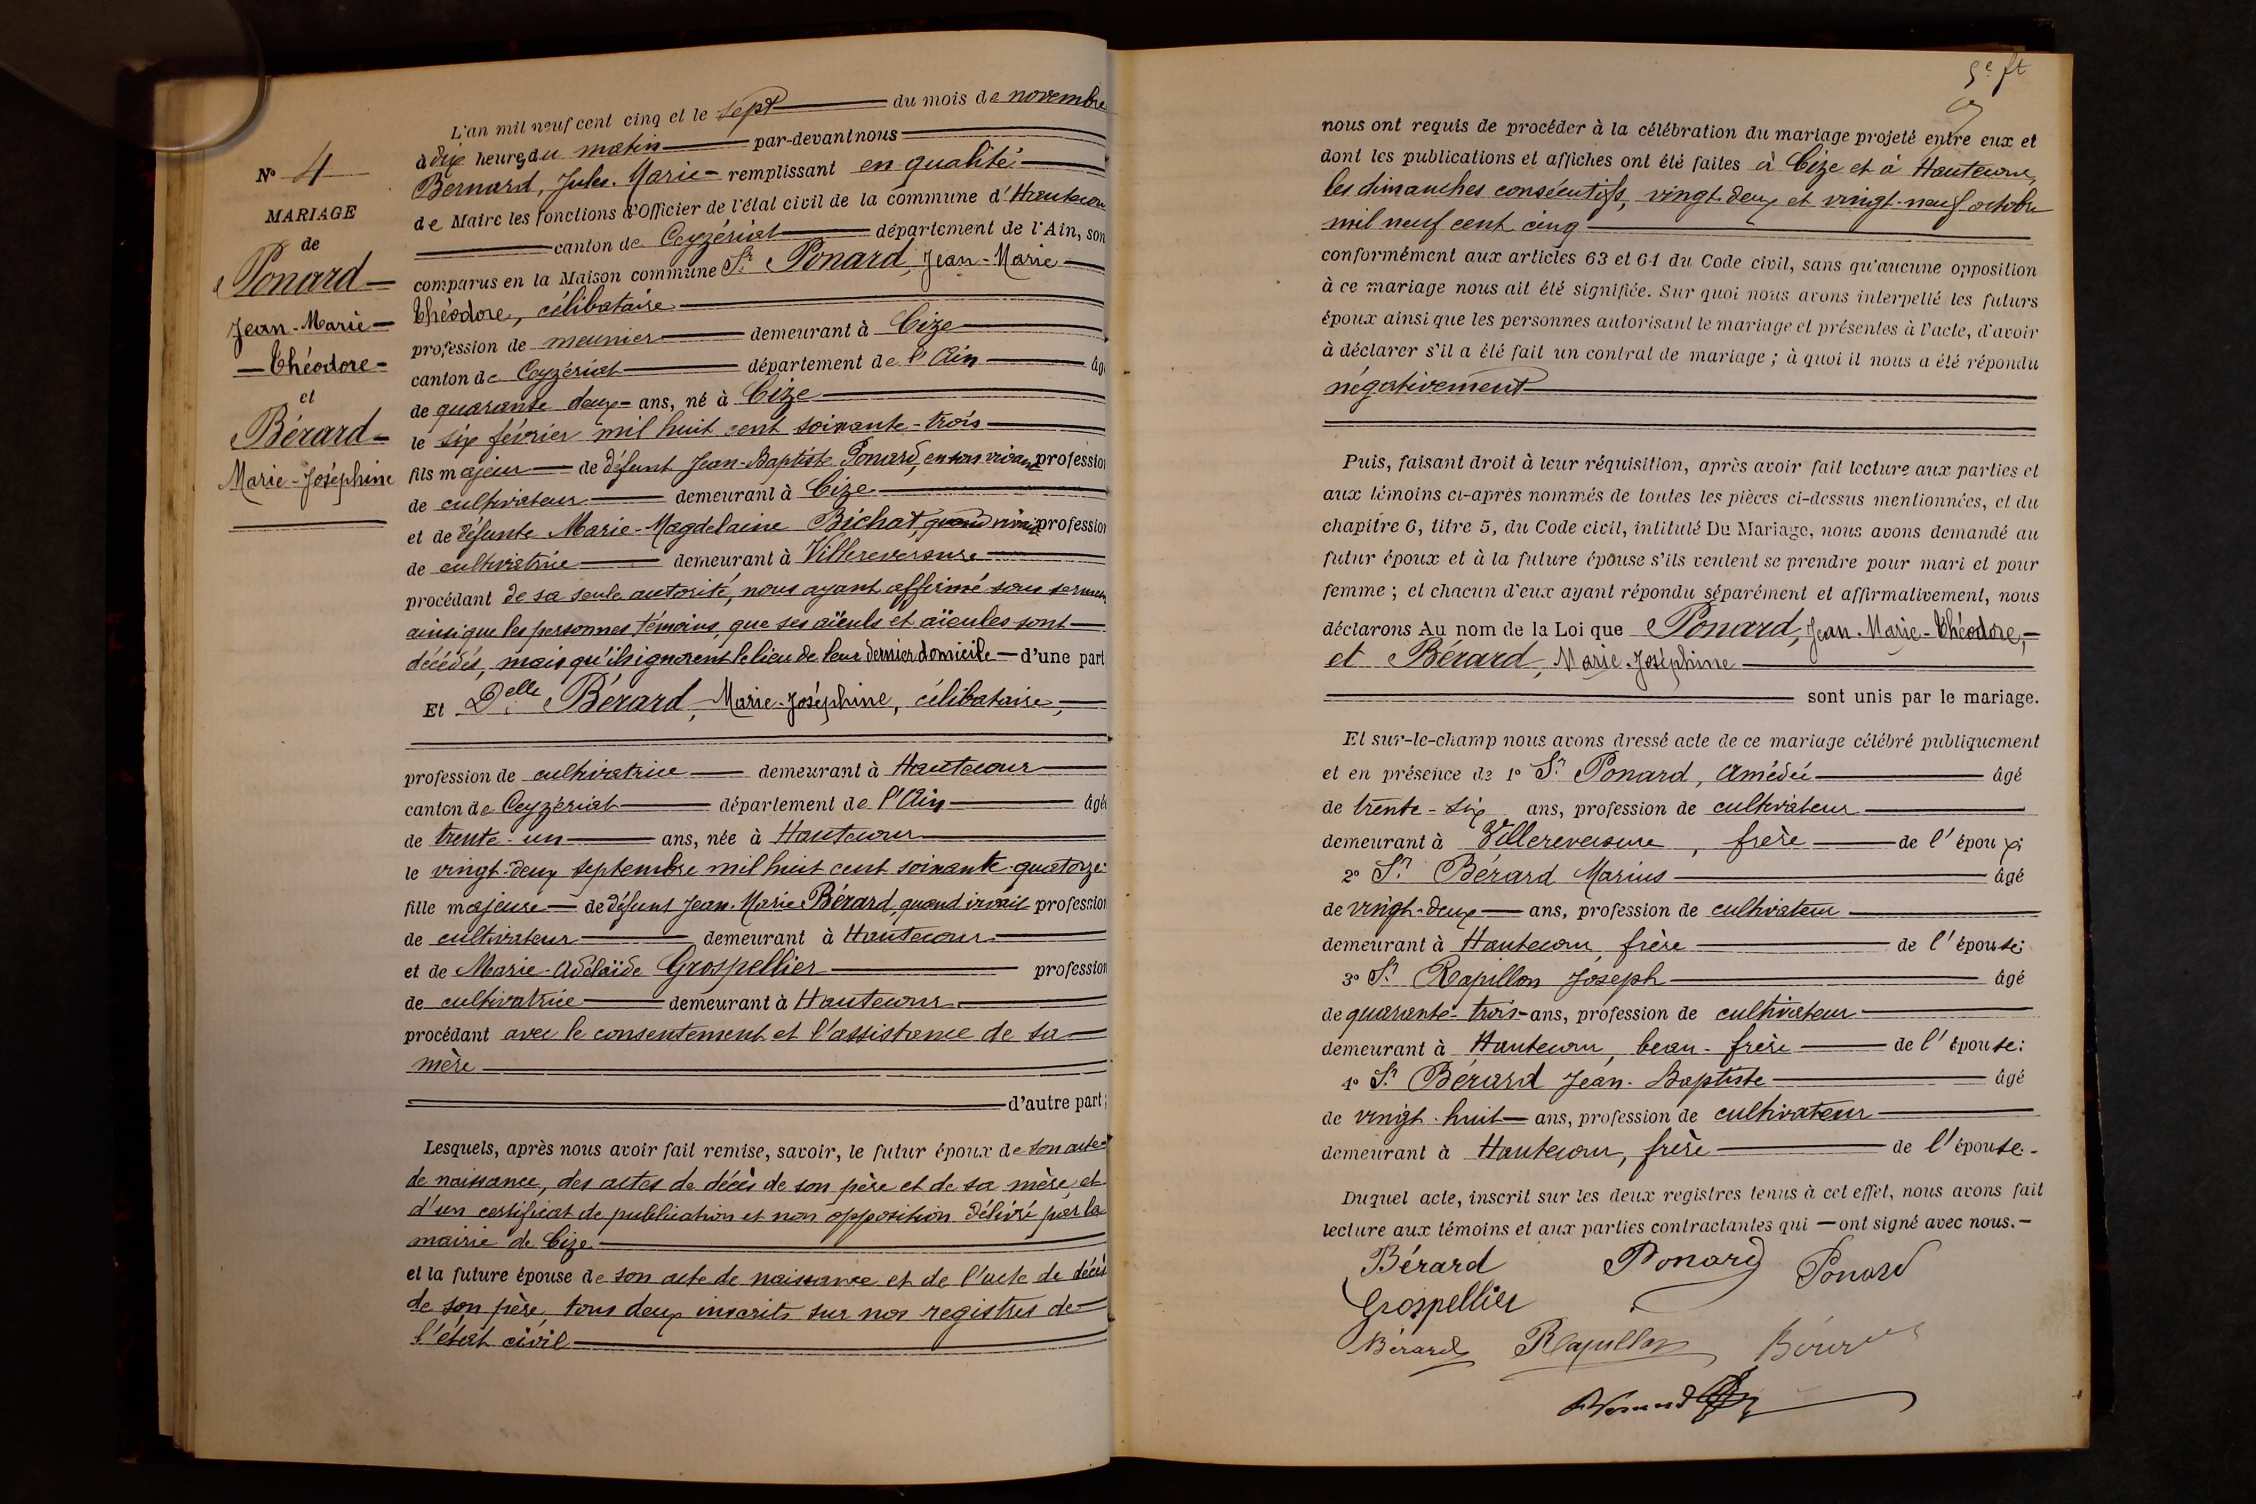 L'an mil neuf cent cinq et le sept du mois de novembre
à dix heures du matin par-devant nous
Bernard, Jules-Marie remplissant en qualité
de Maire les fonctions d'Officier de l'état civil de la commune d'Hautecour
canton de Ceyzériat département de l'Ain, son
comparus en la Maison commune Sr. Ponard, Jean-Marie
Théodore, célibataire
profession de meunier demeurant à Cize
canton de Ceyzériat département de l'Ain âgé
de quarante deux ans, né à Cize
le six février mil huit cent soixante-trois
fils majeur de défunt Jean-Baptiste Ponard, en son vivant profession
de cultivateur demeurant à Cize
et de défunte Marie-Magdelaine Bichat, quand vivait profession
de cultivatrice demeurant à Villereversure
procédant de sa seule autorité, nous ayant affirmé sous serment
ainsi que les personnes témoins, que ses aïeuls et aïeules sont
décédés, mais qu'ils ignorent le lieu de leur dernier domicile d'une part
Et Delle Bérard, Marie-Joséphine, célibataire,
profession de cultivatrice demeurant à Hautecour
canton de Ceyzériat département de l'Ain âgée
de trente-un ans, née à Hautecour
le vingt-deux septembre mil huit cent soixante-quatorze
fille majeure de défunt Jean-Marie Bérard, quand vivait profession
de cultivateur demeurant à Hautecour
et de Marie-Adélaïde Grospellier profession
de cultivatrice demeurant à Hautecour
procédant avec le consentement et l'assistance de sa
mère
d'autre part;
Lesquels, après nous avoir fait remise, savoir, le futur époux de son acte
de naissance, des actes de décès de son père et de sa mère, et
d'un certificat de publication et non opposition délivré par la
mairie de Cize
et la future épouse de son acte de naissance et de l'acte de décès
de son père, tous deux inscrits sur nos registres de
l'état civil
No 4
MARIAGE
de
Ponard
Jean-Marie
Théodore
et
Bérard
Marie-Joséphine
5e ft
nous ont requis de procéder à la célébration du mariage projeté entre eux et
dont les publications et affiches ont été faites à Cize et à Hautecour,
les dimanches consécutifs, vingt-deux et vingt-neuf octobre
mil neuf cent cinq
conformément aux articles 63 et 64 du Code civil, sans qu'aucune opposition
à ce mariage nous ait été signifiée. Sur quoi nous avons interpellé les futurs
époux ainsi que les personnes autorisant le mariage et présentes à l'acte, d'avoir
à déclarer s'il a été fait un contrat de mariage ; à quoi il nous a été répondu
négativement
Puis, faisant droit à leur réquisition, après avoir fait lecture aux parties et
aux témoins ci-après nommés de toutes les pièces ci-dessus mentionnées, et du
chapitre 6, titre 5, du Code civil, intitulé Du Mariage, nous avons demandé au
futur époux et à la future épouse s'ils veulent se prendre pour mari et pour
femme ; et chacun d'eux ayant répondu séparément et affirmativement, nous
déclarons Au nom de la Loi que Ponard, Jean-Marie-Théodore,
et Bérard, Marie-Joséphine
sont unis par le mariage.
Et sur-le-champ nous avons dressé acte de ce mariage célébré publiquement
et en présence de 1o Sr. Ponard, Amédée âgé
de trente-six ans, profession de cultivateur
demeurant à Villereversure, frère de l'époux;
2o Sr. Bérard Marius âgé
de vingt-deux ans, profession de cultivateur
demeurant à Hautecour, frère de l'épouse;
3o Sr. Rapillon Joseph âgé
de quarante-trois ans, profession de cultivateur
demeurant à Hautecour, beau-frère de l'épouse:
4o Sr. Bérard Jean-Baptiste âgé
de vingt-huit ans, profession de cultivateur
demeurant à Hautecour, frère de l'épouse.
Duquel acte, inscrit sur les deux registres tenus à cet effet, nous avons fait
lecture aux témoins et aux parties contractantes qui ont signé avec nous.
Bérard Ponard Ponard
Grospellier
Bérard Rapillon
Bernard